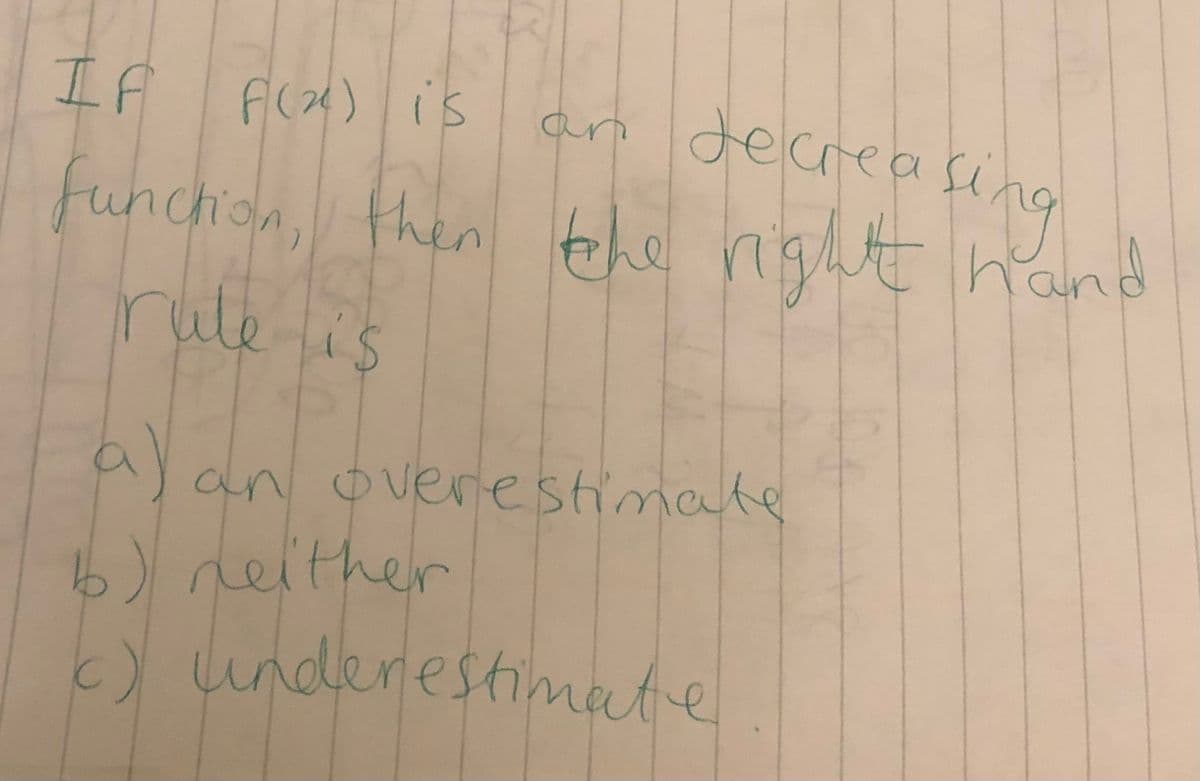 If f(x) is an decreasing
function, then the right hand
rule is
a) an overestimate
b) neither
c) underestimate.